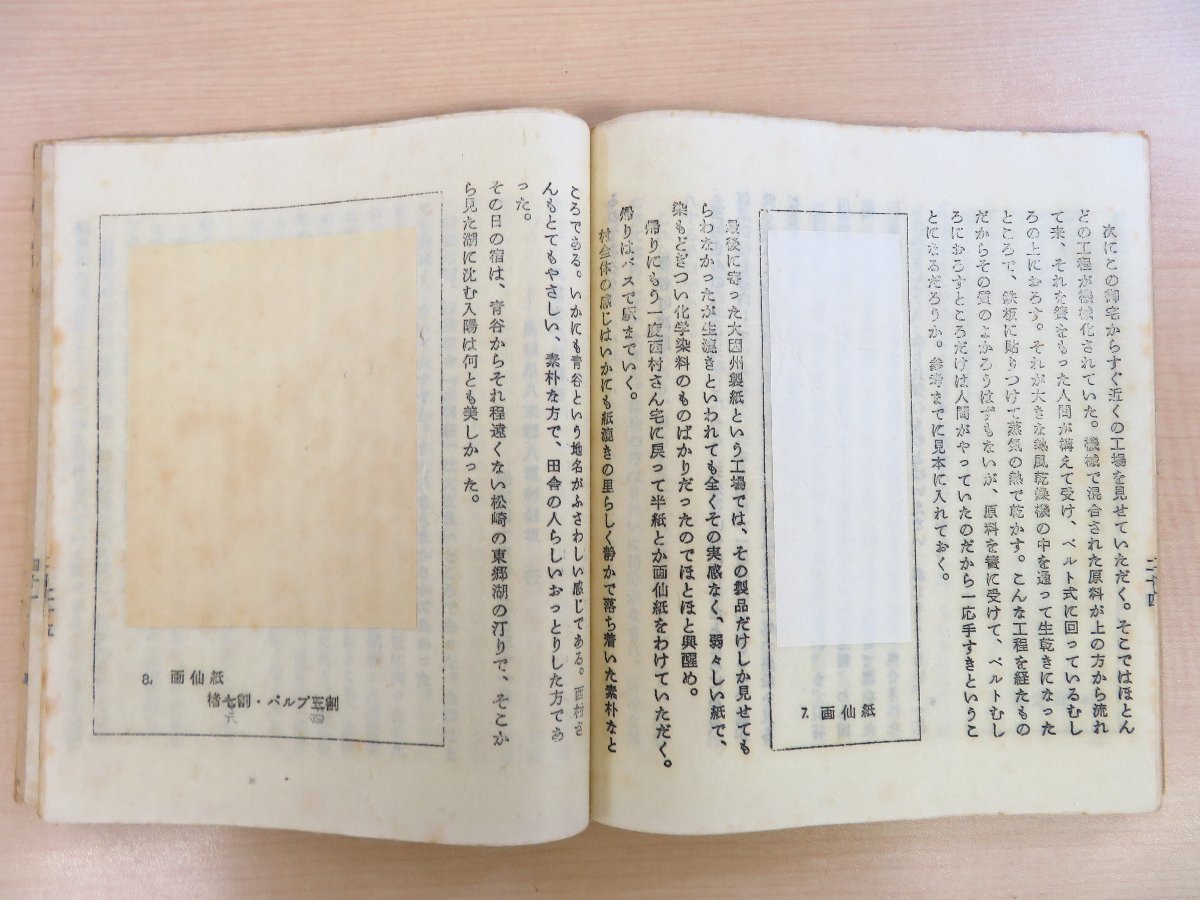 次にこの御宅からすぐ近くの工場を見せていただく。そこではほとん
どの工程が機械化されていた。機械で混合された原料が上の方から流れ
て来、それを簀をもった人間が構えて受け、ベルト式に回っているむし
ろの上におろす。それが大きな熱風乾燥機の中を通って生乾きになった
ところで、鉄板に貼りつけて蒸気の熱で乾かす。こんな工程を経たもの
だからその質のよかろうはずもないが、原料を簀に受けて、ベルトむし
ろにおろすところだけは人間がやっていたのだから一応手すきというこ
とになるだろうか。参考までに見本に入れておく。
7. 画仙紙
最後に寄った大因州製紙という工場では、その製品だけしか見せても
らわなかったが生漉きといわれても全くその実感なく、弱々しい紙で、
染もどぎつい化学染料のものばかりだったのでほとほと興醒め。
帰りにもう一度西村さん宅に戻って半紙とか画仙紙をわけていただく。
帰りはバスで駅までいく。
村全体の感じはいかにも紙漉きの里らしく静かで落ち着いた素朴なと
ころである。いかにも青谷という地名がふさわしい感じである。西村さ
んもとてもやさしい、素朴な方で、田舎の人らしいおっとりした方であ
った。
その日の宿は、青谷からそれ程遠くない松崎の東郷湖の汀りで、そこか
ら見た湖に沈む入陽は何とも美しかった。
8. 画仙紙
楮七割・パルプ三割
六
四
二十四